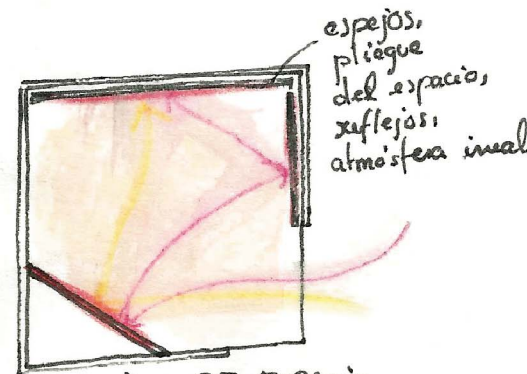 espejos,
pliegue
del espacio,
reflejos,
atmósfera irreal